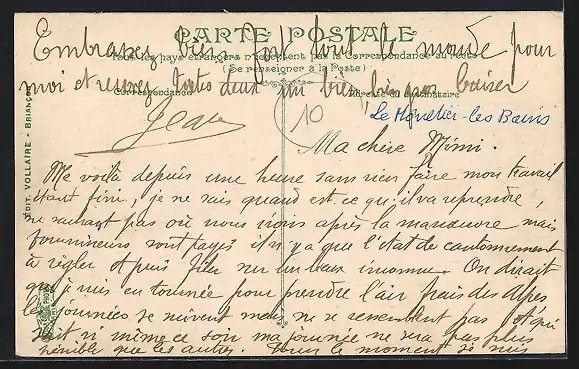 CARTE POSTALE
Tous les pays étrangers n'acceptent pas la Correspondance au recto
(Se renseigner à la Poste)
Correspondance
Adresse du destinataire
Embrassez bien fort tout le monde pour
moi et recevez toutes deux un bien gros baiser
Jean
10
Le Monêtier-les-Bains
EDIT. VOLLAIRE - BRIANÇON
Ma chère Mimi.
Me voilà depuis une heure sans rien faire mon travail
étant fini, je ne sais quand est-ce qu'il va reprendre,
ne sachant pas où nous irons après la manœuvre mais
fournisseurs sont il n'y a que l'état de cantonnement
à régler et puis filer sur un lieux inconnu. On dirait
que je suis en tournée pour prendre l'air frais des Alpes
les journées se suivent mais ne se ressemblent pas et qui
sait si même ce soir ma journée ne sera pas plus
pénible que les autres. Pour le moment je suis